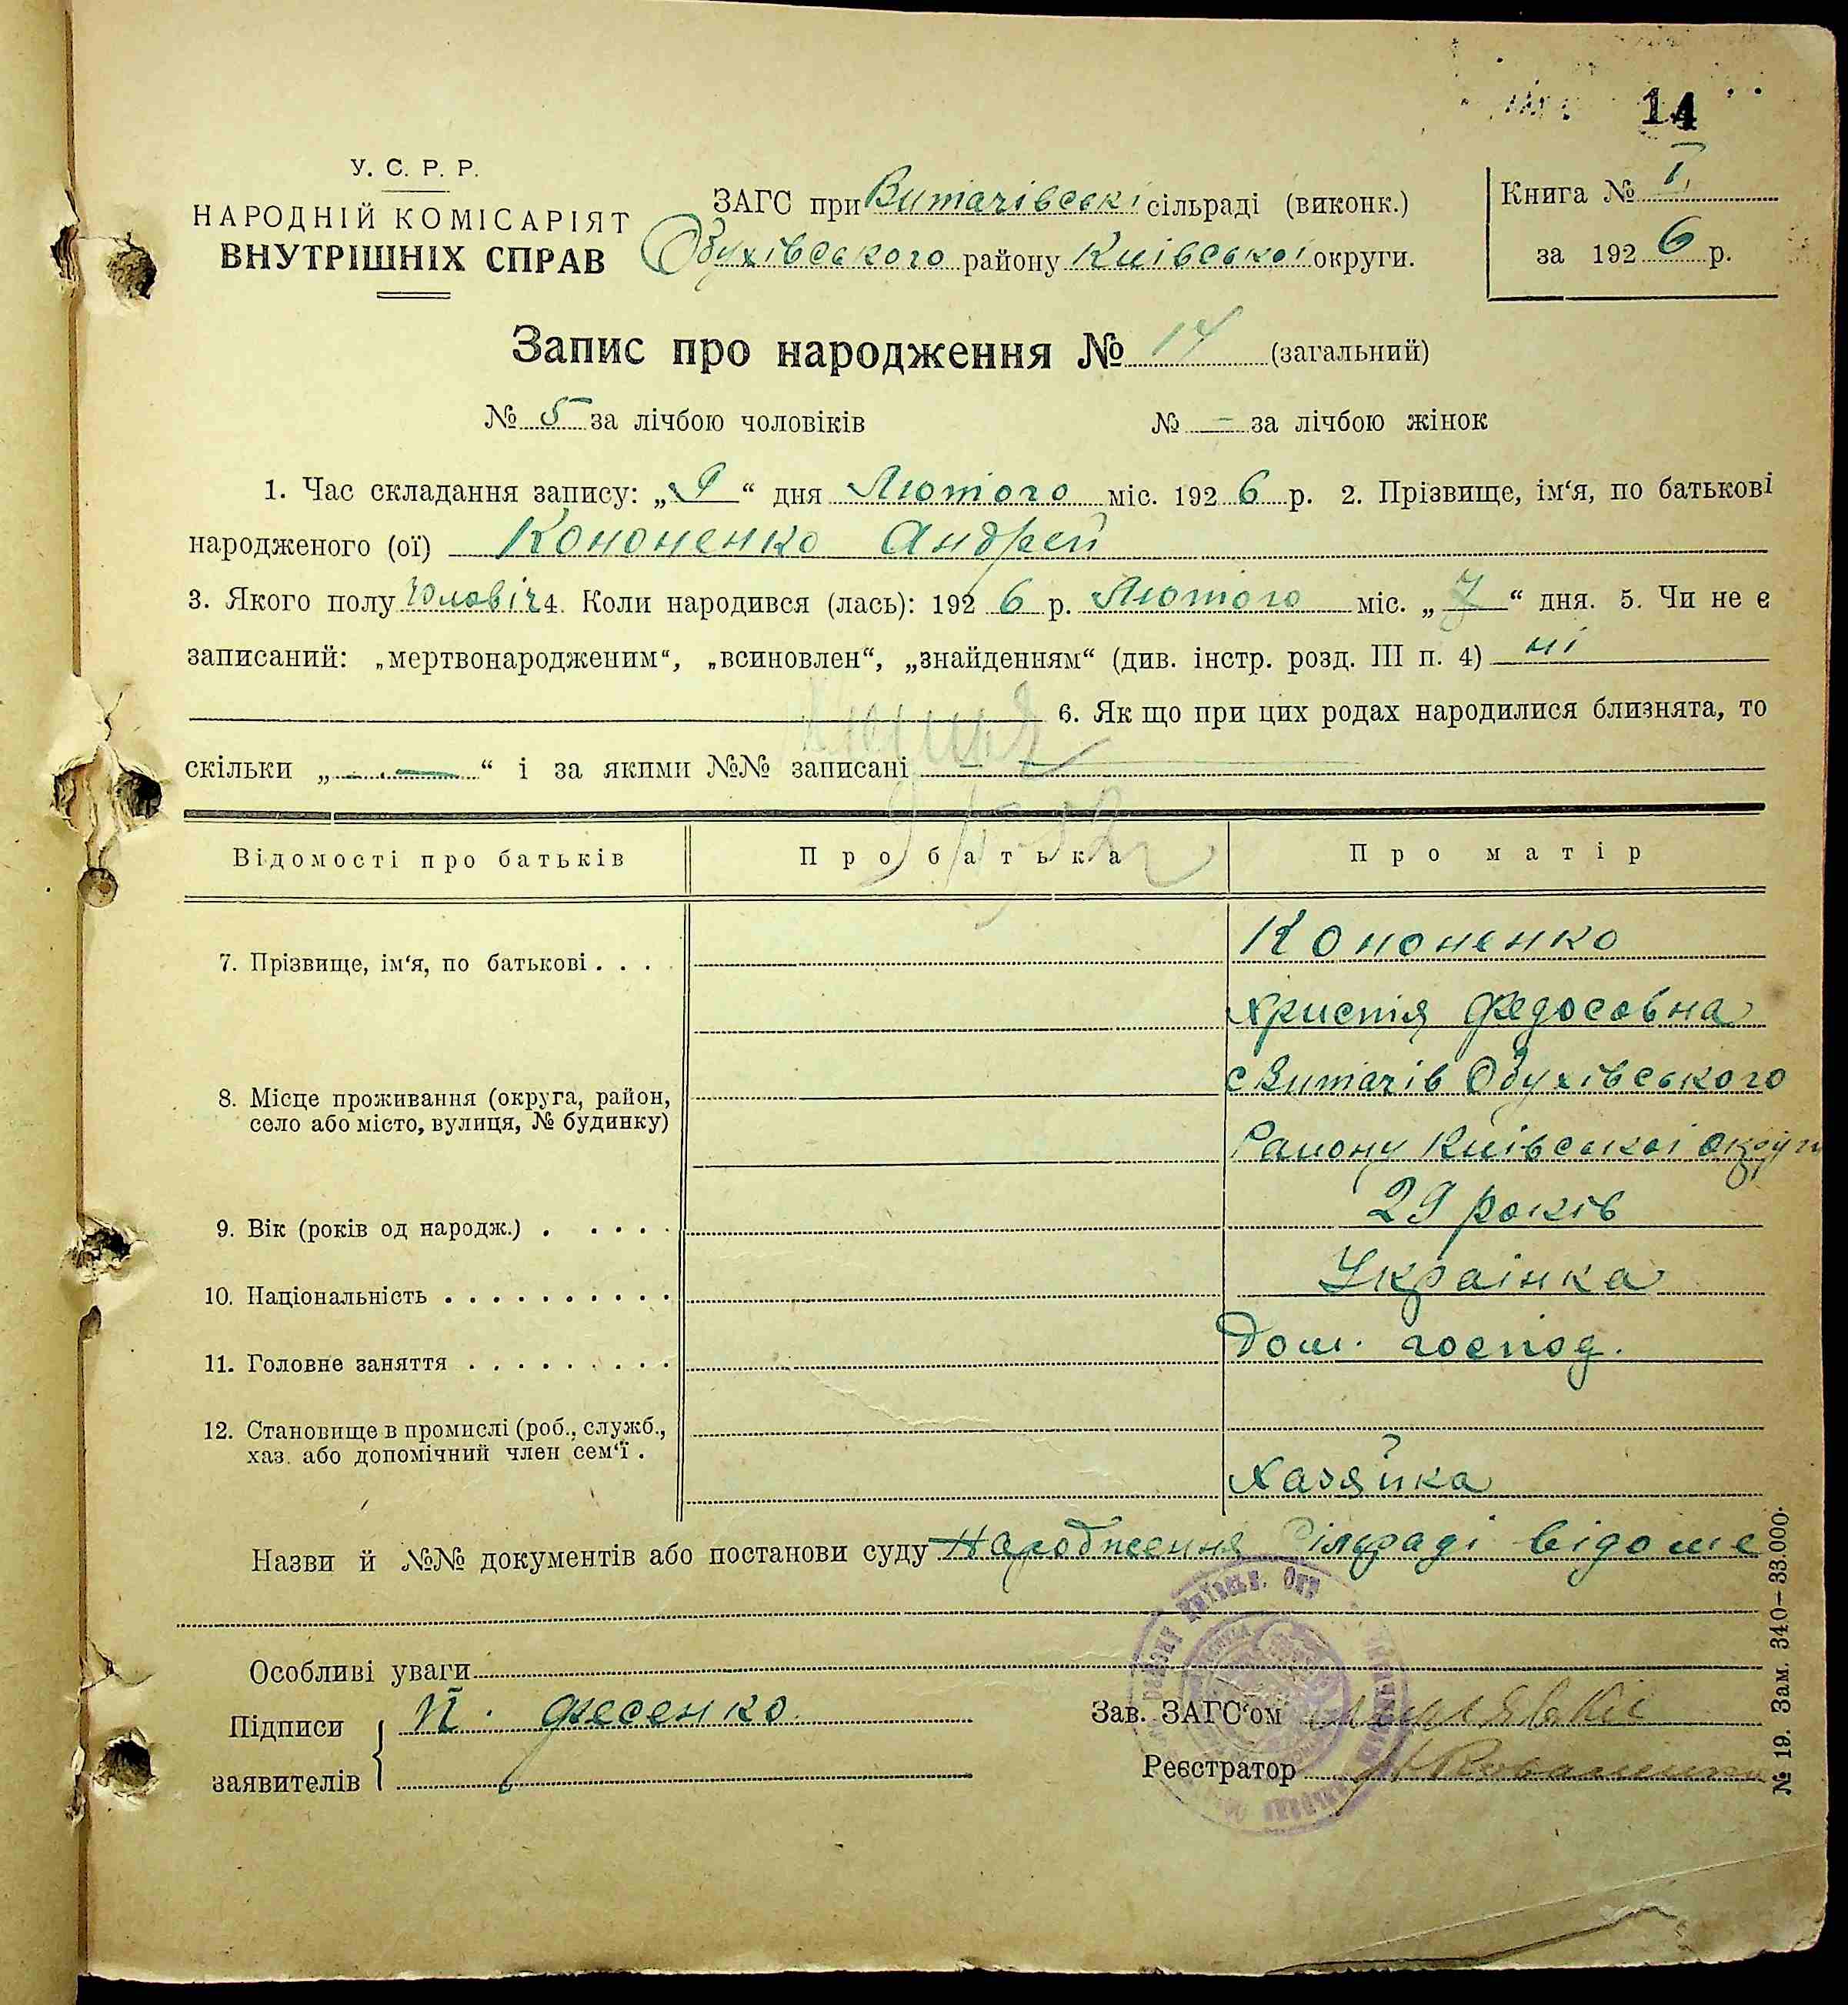 14
У. С. Р. Р.
НАРОДНІЙ КОМІСАРІЯТ
ВНУТРІШНІХ СПРАВ
ЗАГС при Витачівській сільраді (виконк.)
Обухівського району Київської округи.
Книга № I
за 1926 р.
Запис про народження № 14 (загальний)
№ 5 за лічбою чоловіків № - за лічбою жінок
1. Час складання запису: „9“ дня Лютого міс. 1926 р. 2. Прізвище, ім‘я, по батькові
народженого (ої) Кононенко Андрей
3. Якого полу Чоловіч 4. Коли народився (лась): 1926 р. Лютого міс. „7“ дня. 5. Чи не є
записаний: „мертвонародженим“, „всиновлен“, „знайденням“ (див. інстр. розд. III п. 4) ні
6. Як що при цих родах народилися близнята, то
скільки „—“ і за якими №№ записані —
Відомості про батьків Про батька Про матір
7. Прізвище, ім‘я, по батькові . . . Кононенко
Христя Федосовна
8. Місце проживання (округа, район,
село або місто, вулиця, № будинку)
с Витачів Обухівського
Району Київської округи
9. Вік (років од народж.) . . . . . 29 років
10. Національність . . . . . . . . . . Українка
11. Головне заняття . . . . . . . . . Дом. господ.
12. Становище в промислі (роб., служб.,
хаз. або допомічний член сем‘ї .
Хазяйка
Назви й №№ документів або постанови суду Народження Сілраді відоме
Особливі уваги
Підписи
заявителів
П. Фесенко
Зав. ЗАГС‘ом
Реєстратор
№ 19. Зам. 340–33.000.